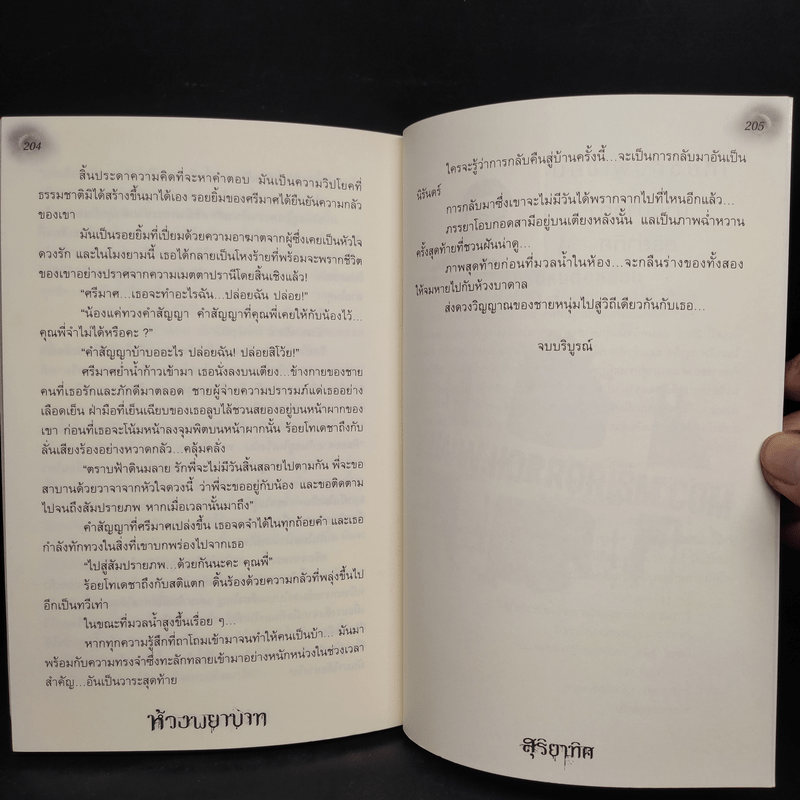 204
สิ้นประดาความคิดที่จะหาคำตอบ มันเป็นความวิปโยคที่
ธรรมชาติมิได้สร้างขึ้นมาได้เอง รอยยิ้มของศรีมาศได้ยืนยันความกลัว
ของเขา
มันเป็นรอยยิ้มที่เปี่ยมด้วยความอาฆาตจากผู้ซึ่งเคยเป็นหัวใจ
ดวงรัก และในโมงยามนี้ เธอได้กลายเป็นโหงร้ายที่พร้อมจะพรากชีวิต
ของเขาอย่างปราศจากความเมตตาปรานีโดยสิ้นเชิงแล้ว!
“ศรีมาศ...เธอจะทำอะไรฉัน...ปล่อยฉัน ปล่อย!”
“น้องแค่ทวงคำสัญญา คำสัญญาที่คุณพี่เคยให้กับน้องไว้...
คุณพี่จำไม่ได้หรือคะ ?”
“คำสัญญาบ้าบออะไร ปล่อยฉัน! ปล่อยสิโว้ย!”
ศรีมาศย่ำน้ำก้าวเข้ามา เธอนั่งลงบนเตียง...ข้างกายของชาย
คนที่เธอรักและภักดีมาตลอด ชายผู้จ่ายความปรารมภ์แด่เธออย่าง
เลือดเย็น ฝ่ามือที่เย็นเฉียบของเธอลูบไล้ชวนสยองอยู่บนหน้าผากของ
เขา ก่อนที่เธอจะโน้มหน้าลงจุมพิตบนหน้าผากนั้น ร้อยโทเดชาถึงกับ
ลั่นเสียงร้องอย่างหวาดกลัว...คลุ้มคลั่ง
“ตราบฟ้าดินมลาย รักพี่จะไม่มีวันสิ้นสลายไปตามกัน พี่จะขอ
สาบานด้วยวาจาจากหัวใจดวงนี้ ว่าพี่จะขออยู่กับน้อง และขอติดตาม
ไปจนถึงสัมปรายภพ หากเมื่อเวลานั้นมาถึง”
คำสัญญาที่ศรีมาศเปล่งขึ้น เธอจดจำได้ในทุกถ้อยคำ และเธอ
กำลังทักทวงในสิ่งที่เขาบกพร่องไปจากเธอ
“ไปสู่สัมปรายภพ...ด้วยกันนะคะ คุณพี่”
ร้อยโทเดชาถึงกับสติแตก ดิ้นร้องด้วยความกลัวที่พลุ่งขึ้นไป
อีกเป็นทวีเท่า
ในขณะที่มวลน้ำสูงขึ้นเรื่อย ๆ...
หากทุกความรู้สึกที่ถาโถมเข้ามาจนทำให้คนเป็นบ้า... มันมา
พร้อมกับความทรงจำซึ่งทะลักทลายเข้ามาอย่างหนักหน่วงในช่วงเวลา
สำคัญ...อันเป็นวาระสุดท้าย
ห้วงพยาบาท
205
ใครจะรู้ว่าการกลับคืนสู่บ้านครั้งนี้...จะเป็นการกลับมาอันเป็น
นิรันดร์
การกลับมาซึ่งเขาจะไม่มีวันได้พรากจากไปที่ไหนอีกแล้ว...
ภรรยาโอบกอดสามีอยู่บนเตียงหลังนั้น แลเป็นภาพฉ่ำหวาน
ครั้งสุดท้ายที่ชวนฝันน่าดู...
ภาพสุดท้ายก่อนที่มวลน้ำในห้อง...จะกลืนร่างของทั้งสอง
ให้จมหายไปกับห้วงบาดาล
ส่งดวงวิญญาณของชายหนุ่มไปสู่วิถีเดียวกันกับเธอ...
จบบริบูรณ์
สุริยาทิศ